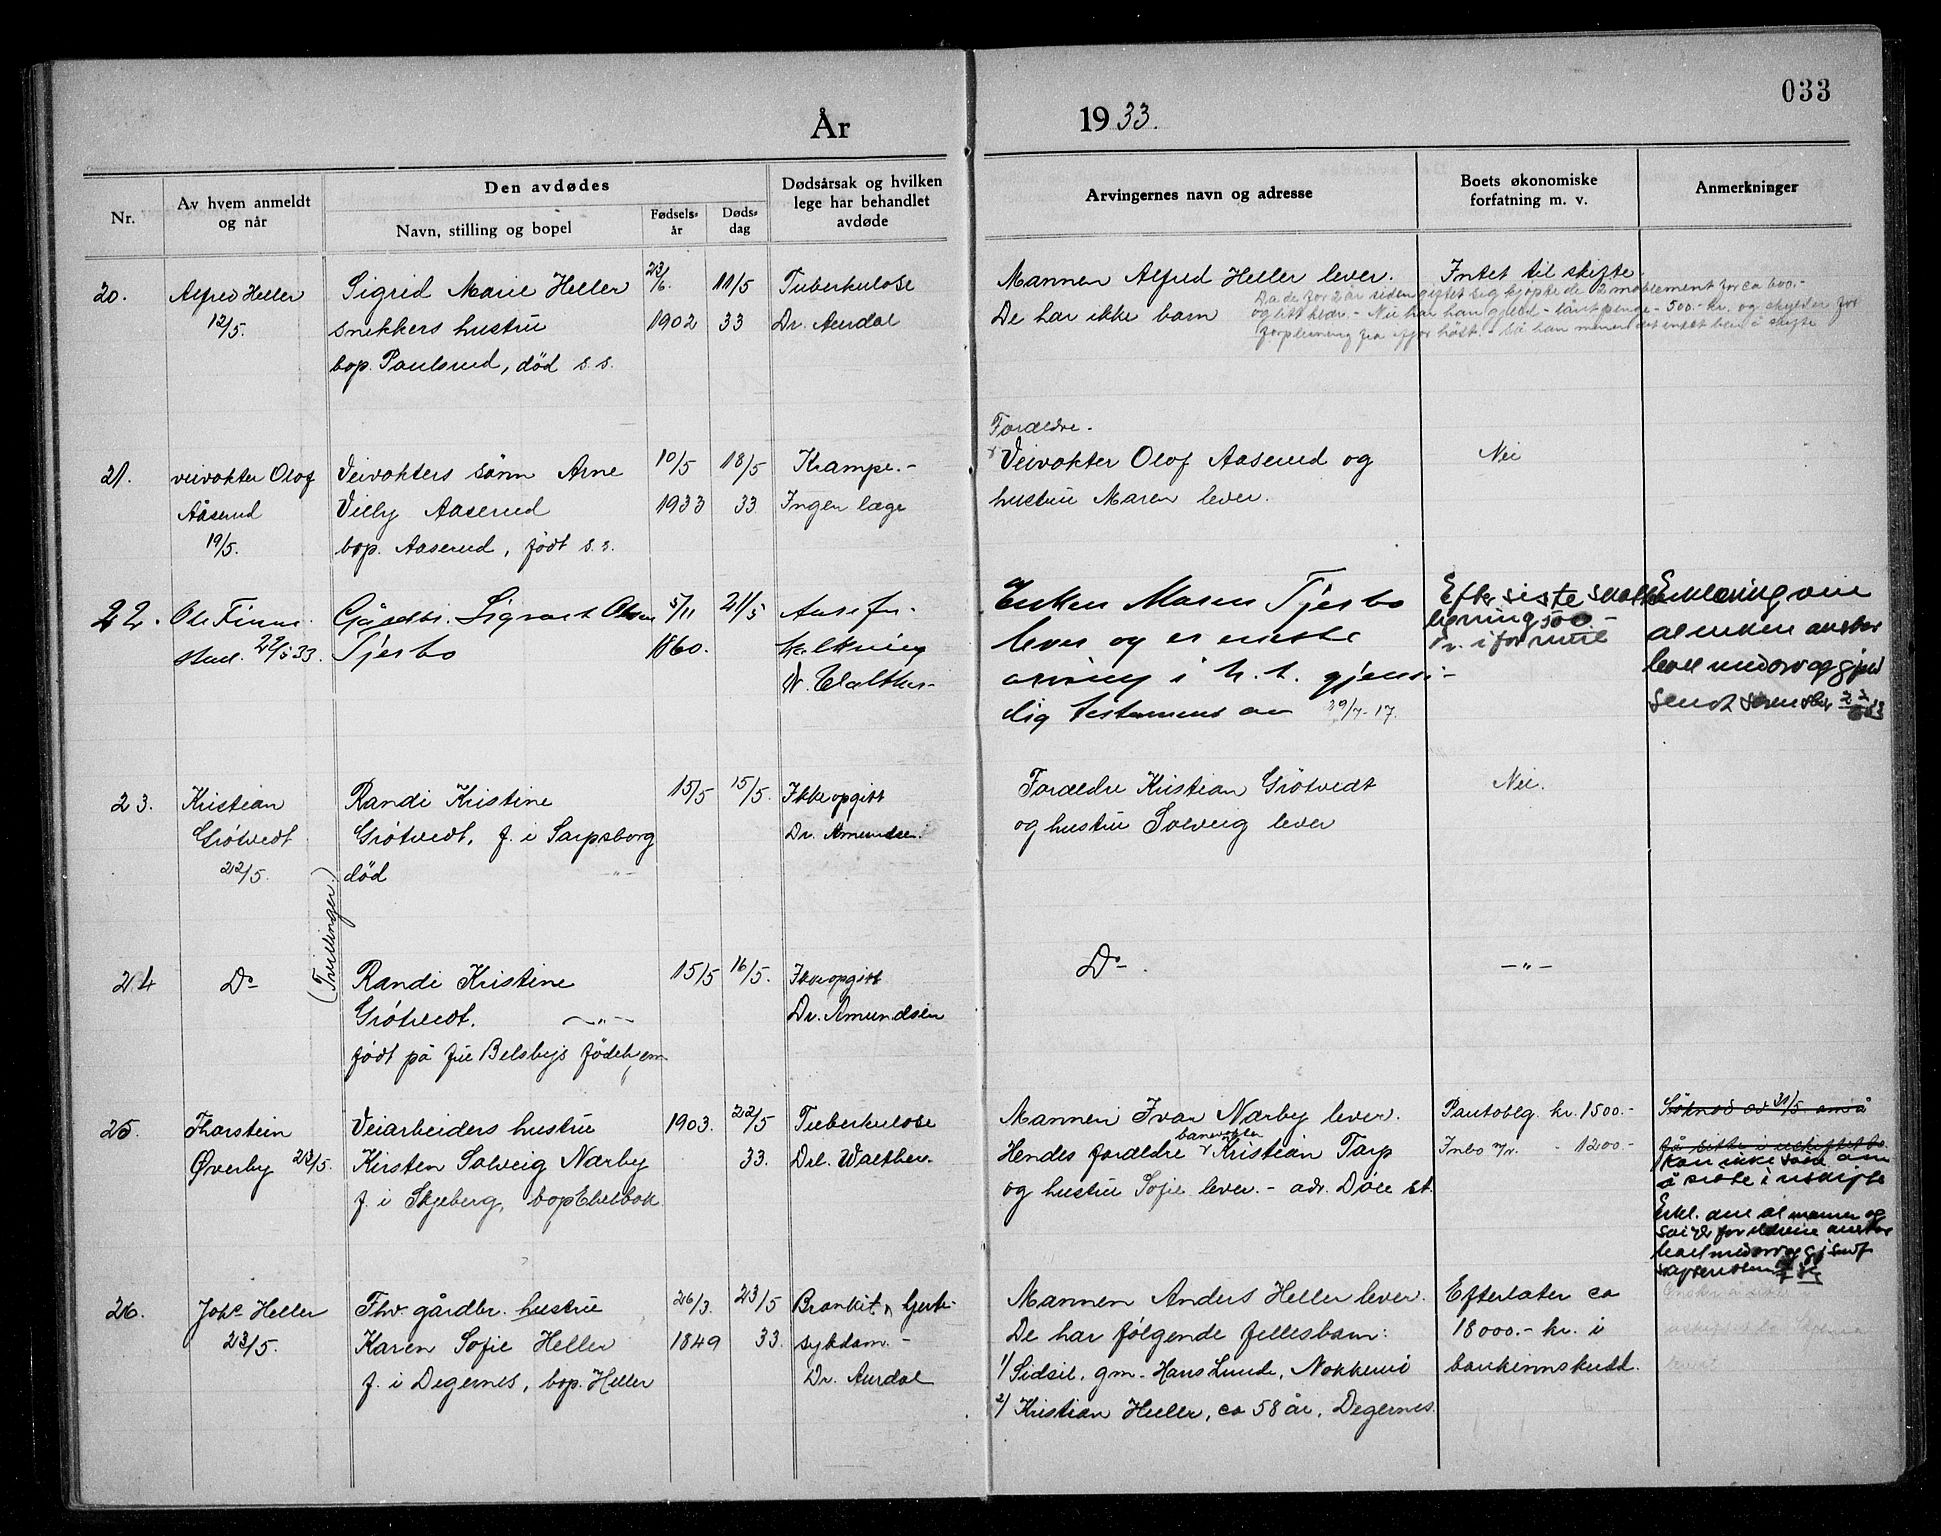 033
År 1933.
Nr.
Av hvem anmeldt
og når
Den avdødes
Navn, stilling og bopel
Fødsels-
år
Døds-
dag
Dødsårsak og hvilken
lege har behandlet
avdøde
Arvingernes navn og adresse
Boets økonomiske
forfatning m. v.
Anmerkninger
20.
Alfred Heller
12/5.
Sigrid Marie Heller
snekkers hustru
bop. Paulsrud, død s. s.
23/6.
1902
11/5
33
Tuberkulose
Dr. Aurdal
Mannen Alfred Heller lever.
De har ikke barn
Intet til skifte.
Da de for 2 år siden giftet sig kjøpte de 2 møblement for ca 600.-
og litt klær. - Nu har han gjeld - lånt penge - 500.- kr. og skylder for
forpleining fra ifjor høst. - så han mener det intet blir å skifte
21.
veivokter Olof
Aaserud
19/5.
Veivokters sønn Arne
Villy Aaserud
bop. Aaserud, født s. s.
10/5
1933
18/5
33
Krampe. -
Ingen læge
Foreldre.
Veivokter Olof Aaserud og
hustru Maren lever.
Nei
22.
Ole Finne-
stad. 22/5 33.
Gårdbr. Sigvart Olsen
Tjerbo
5/11
1860.
21/5
Aarefor-
kalkning
Dr. Walther-
Enken Maren Tjerbo
lever og er eneste
arving i h. t. gjensi-
dig testament av 29/7-17.
Efter siste skatte
ligning 500 -
kr. i formue
Erklæring om
at enken ansvar
sendt sorenskr
23.
Kristian
Grøtvedt
22/5.
Randi Kristine
Grøtvedt, f. i Sarpsborg
død -"-
15/5
15/5.
Ikke opgitt
Dr. Amundsen.
Foreldre Kristian Grøtvedt
og hustru Solveig lever
Nei.
(Tvillinger.)
24
Do
Randi Kristine
Grøtvedt. -"-
født på fru Belsbys fødehjem
15/5
16/5.
Ikke opgitt
Dr. Amundsen
Do - .
-"-
25.
Thorstein
Øverby 23/5.
Veiarbeiders hustru
Kirsten Solveig Nærby
f. i Skjeberg, bop.
1903.
22/5
33.
Tuberkulose
Drl. Walther.
Mannen Ivar Nærby lever.
banevokter
Hendes foreldre Kristian Tarp
og hustru Sofie lever. - adr. Døle st.
Pantoblg. kr. 1500.-
Inbo m/v. - 1200-
Søknad av 31/5 om å
få sitte i uskiftet bo.
kan ikke søke om
å sitte i uskifte
Erkl. om at mannen og
26.
Johs Heller
23/5.
Fhv gårdbr. hustru
Karen Sofie Heller
f. i Degernes, bop. Heller
26/3.
1849
23/5
33.
Bronkit, hjerte-
sykdom. -
Dr. Aurdal
Mannen Anders Heller lever.
De har følgende fellesbarn:
1/ Sidsil, gm. Hans Lunde,
2/ Kristian Heller, ca 58 år, Degernes.
Efterlater ca
18000.- kr. i
bankinnskudd.